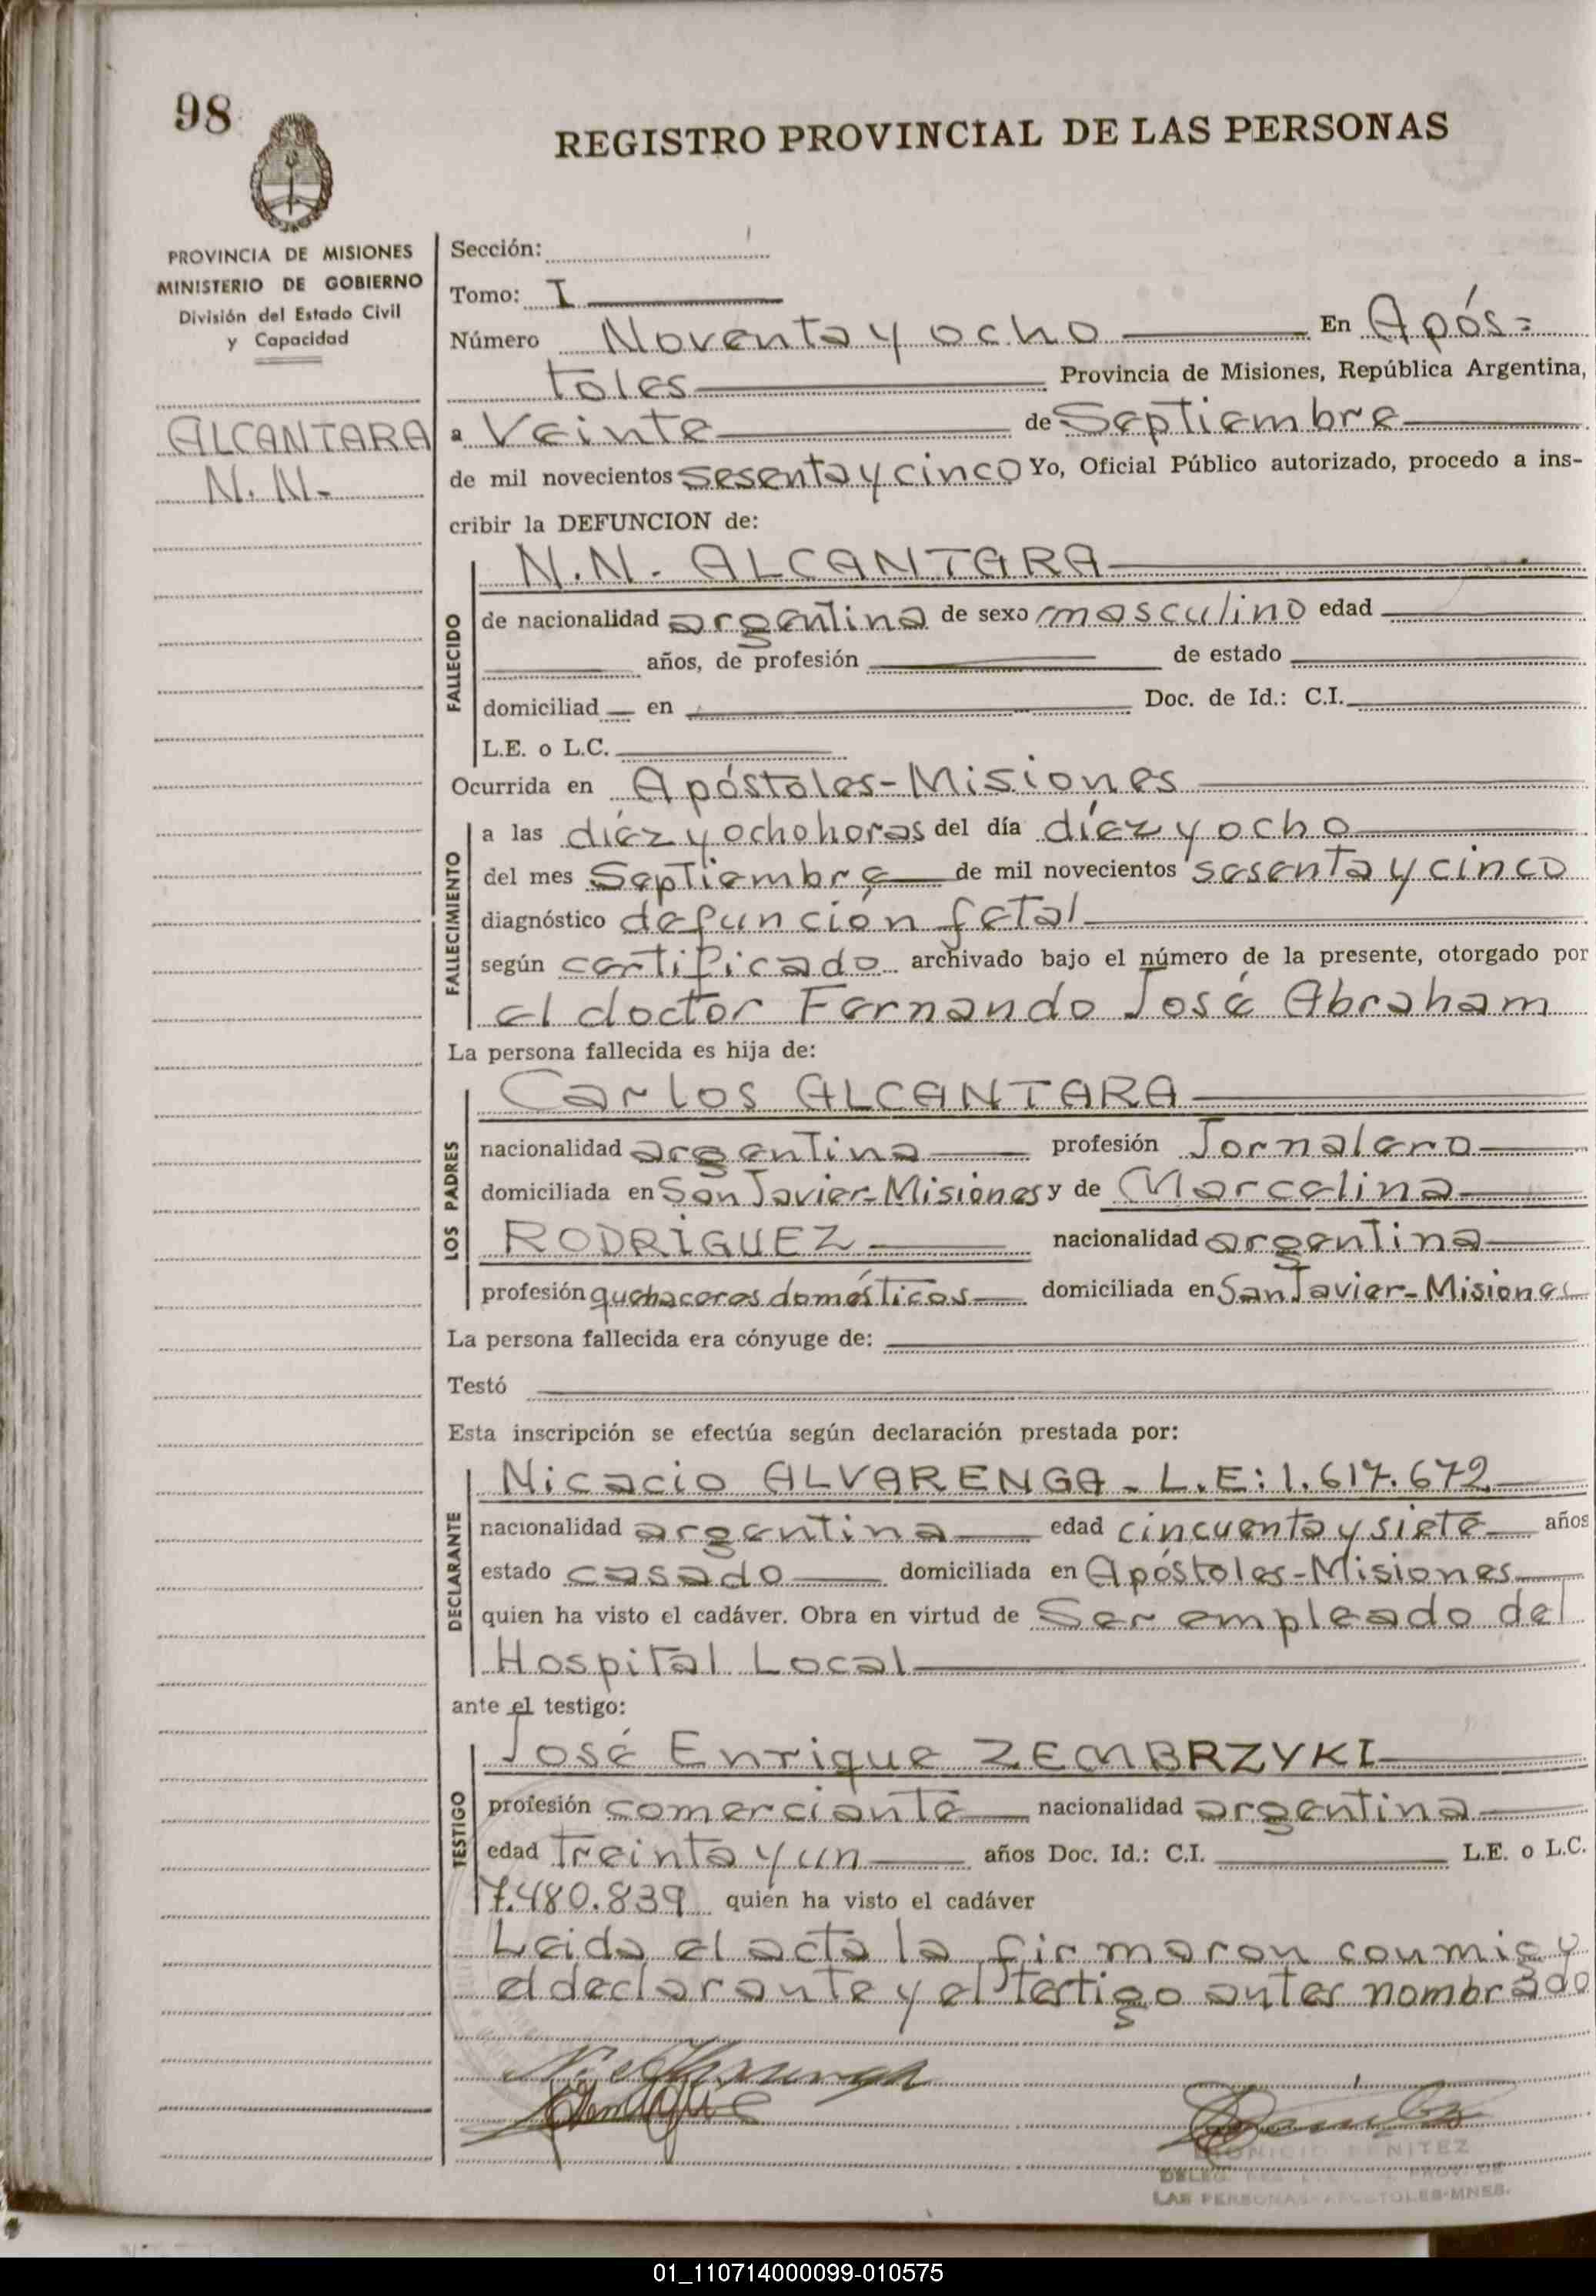 98
REGISTRO PROVINCIAL DE LAS PERSONAS
PROVINCIA DE MISIONES
MINISTERIO DE GOBIERNO
División del Estado Civil
y Capacidad
ALCANTARA
N.N.-
Sección:
Tomo: I
Número Noventa y ocho En Após=
toles Provincia de Misiones, República Argentina,
a Veinte de Septiembre
de mil novecientos sesenta y cinco Yo, Oficial Público autorizado, procedo a ins-
cribir la DEFUNCION de:
FALLECIDO
N.N. - ALCANTARA
de nacionalidad argentina de sexo masculino edad
años, de profesión de estado
domiciliad en Doc. de Id.: C.I.
L.E. o L.C.
Ocurrida en Apóstoles-Misiones
FALLECIMIENTO
a las diéz y ocho horas del día diéz y ocho
del mes Septiembre de mil novecientos sesenta y cinco
diagnóstico defunción fetal
según certificado archivado bajo el número de la presente, otorgado por
el doctor Fernando José Abraham
La persona fallecida es hija de:
LOS PADRES
Carlos ALCANTARA
nacionalidad argentina profesión Jornalero
domiciliada en San Javier-Misiones y de Marcelina
RODRIGUEZ nacionalidad argentina
profesión quehaceres domésticos domiciliada en San Javier-Misiones
La persona fallecida era cónyuge de:
Testó
Esta inscripción se efectúa según declaración prestada por:
DECLARANTE
Nicacio ALVARENGA - L.E: 1.617.672
nacionalidad argentina edad cincuenta y siete años
estado casado domiciliada en Apóstoles-Misiones
quien ha visto el cadáver. Obra en virtud de Ser empleado del
Hospital Local
ante el testigo:
TESTIGO
José Enrique ZEMBRZYKI
profesión comerciante nacionalidad argentina
edad treinta y un años Doc. Id.: C.I. L.E. o L.C.
7.480.839 quien ha visto el cadáver
Leida el acta la firmaron conmigo
el declarante y el tertigo antes nombrado
DIONICIO BENITEZ
DELEG. PROV. DE
LAS PERSONAS-APOSTOLES-MNES.
01_110714000099-010575